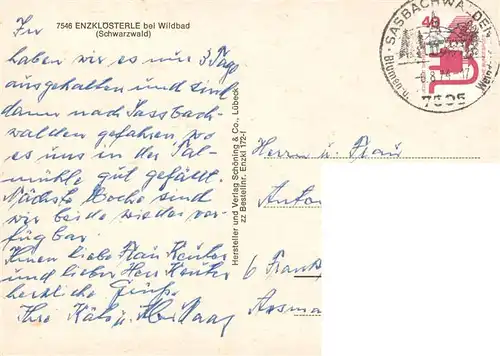 7546 ENZKLÖSTERLE bei Wildbad
(Schwarzwald)
haben wir es nur 3 Tage
ausgehalten und sind
dann nach Sassbach-
walden gefahren wo
es uns in der Tal-
mühle gut gefällt.
Nächste Woche sind
wir beide wieder ver-
fügbar.
Ihnen liebe Frau
und lieber Herr
herzliche Grüße
Ihre Käte u.
Hersteller und Verlag Schöning & Co., Lübeck
zz Bestellnr. Enzkl 172-f
40
SASBACHWALDEN
Blumen- u. Wein
7595
Herrn u. Frau
6 Frank